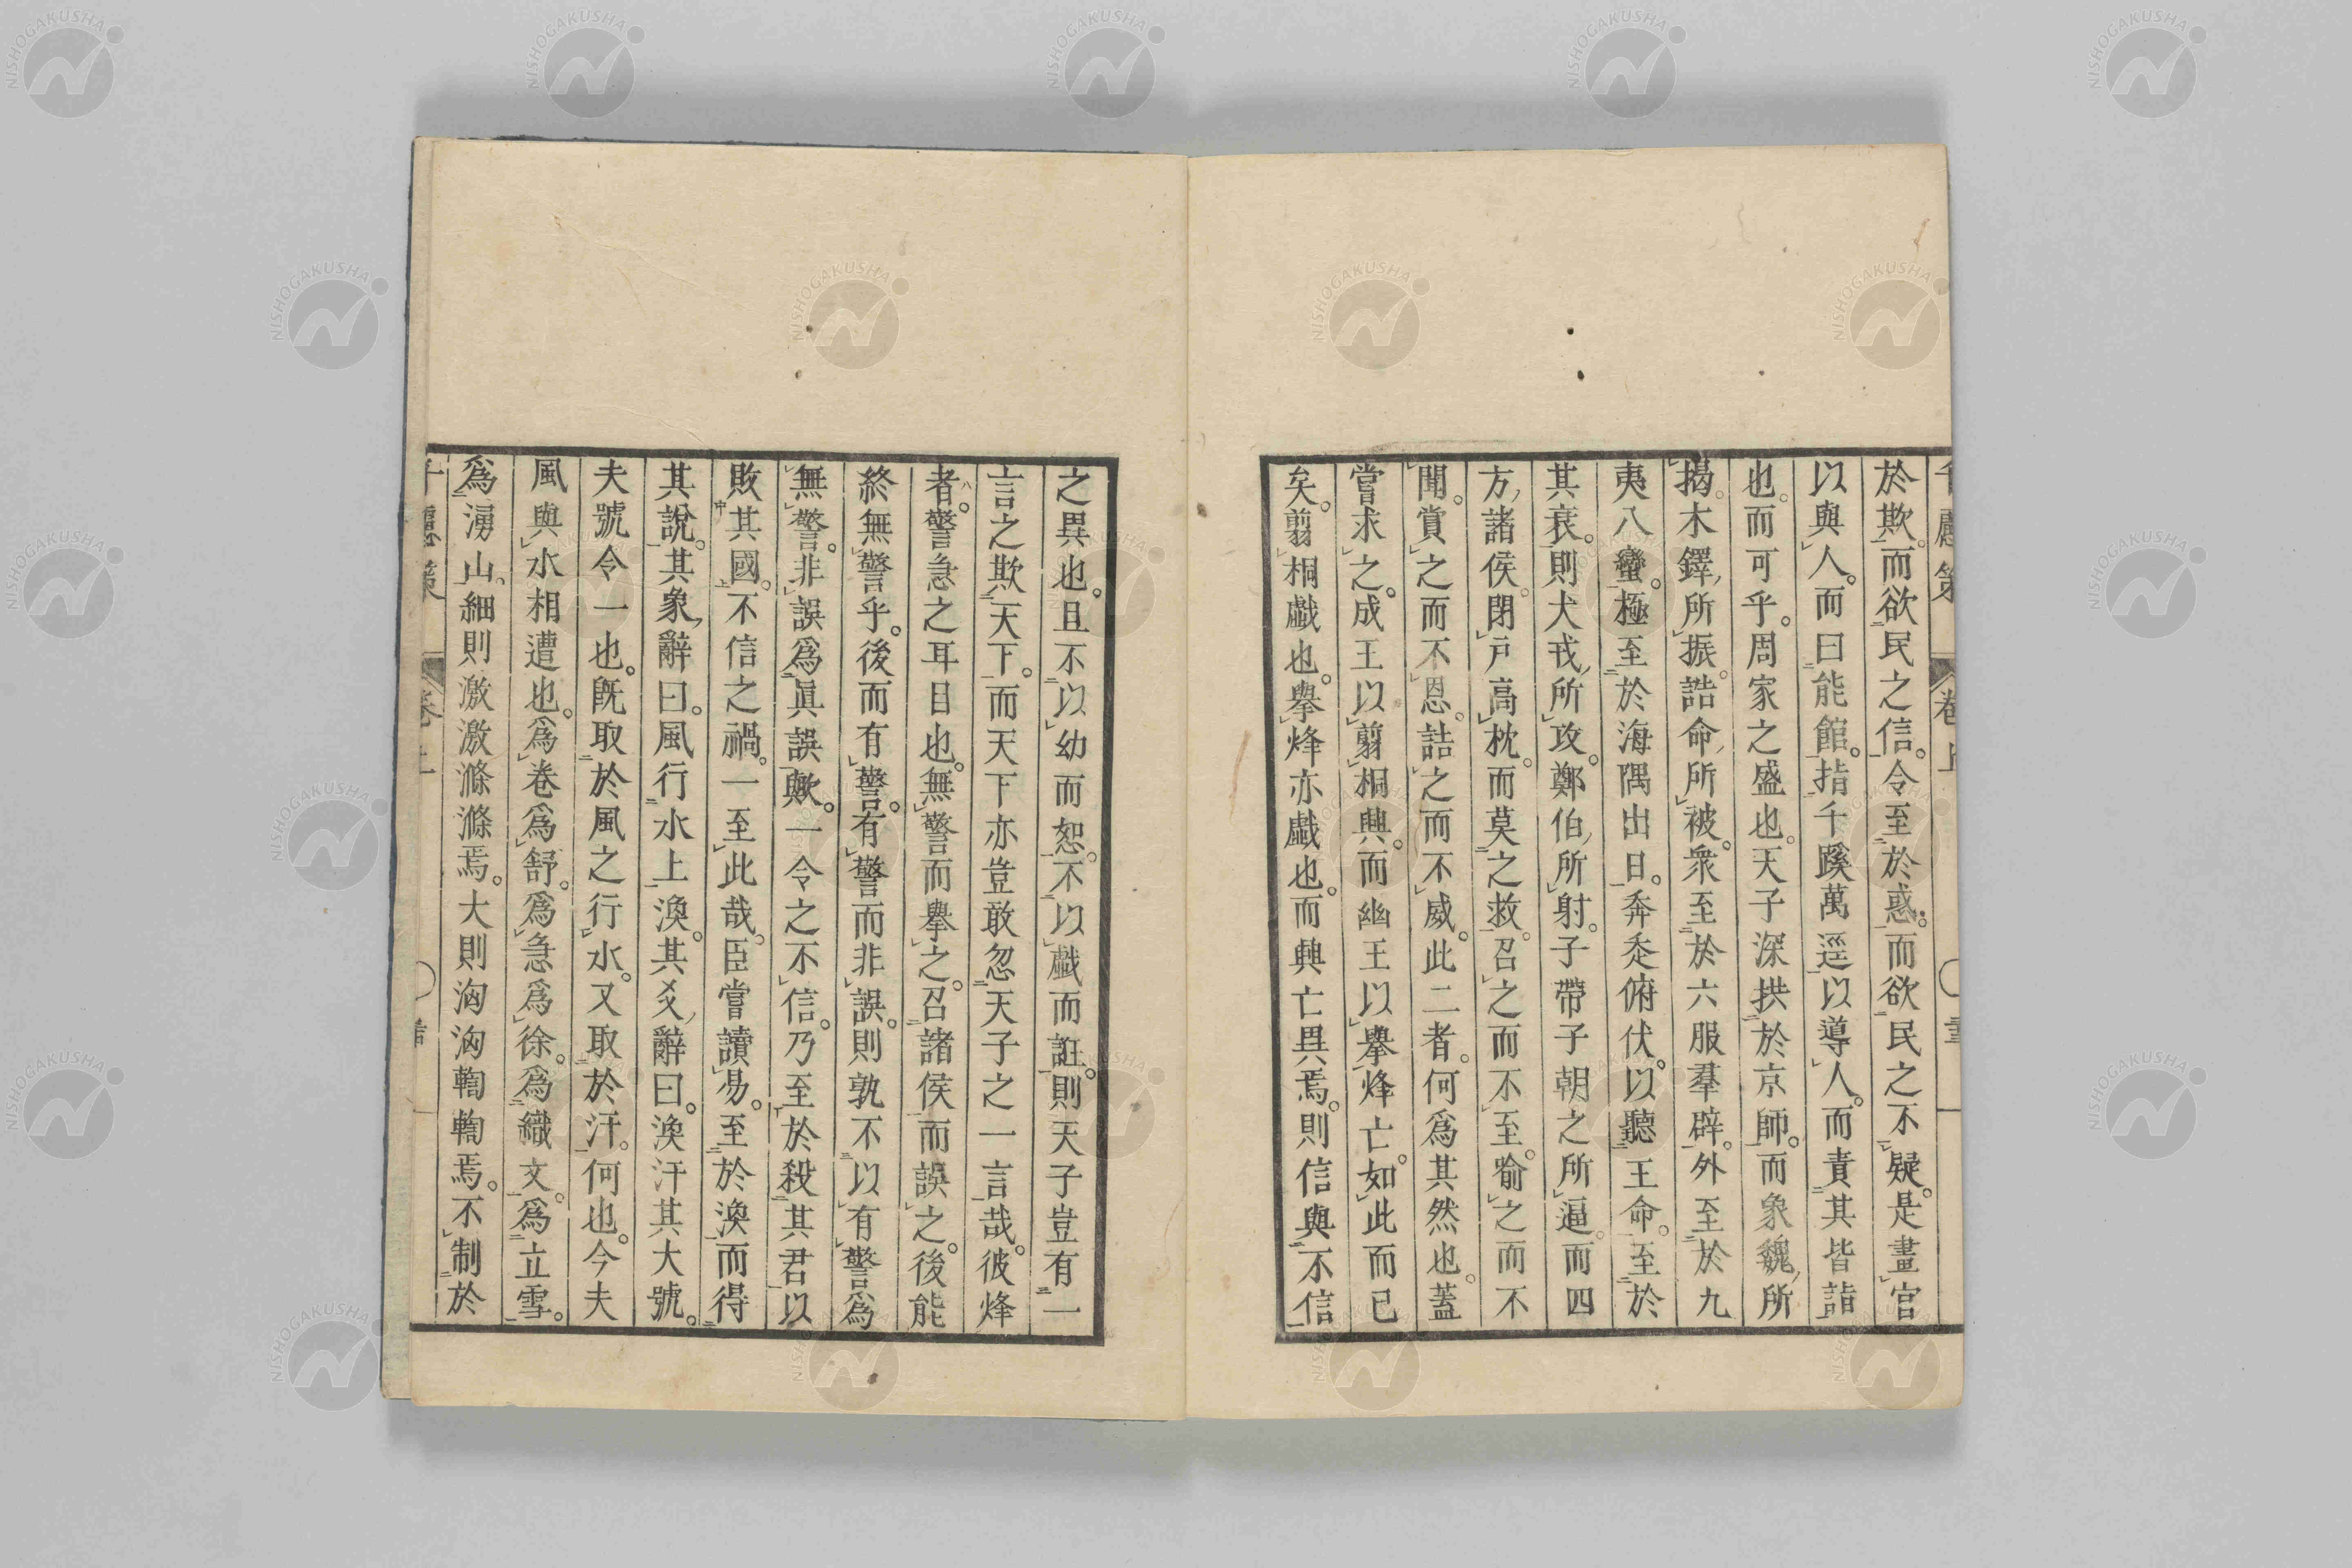 於欺。而欲民之信。令至於惑。而欲民之不疑。是畫官
以與人。而曰能館。指千蹊萬逕以導人。而責其皆詣
也。而可乎。周家之盛也。天子深拱於京師。而象魏所
揭。木鐸所振。誥命所被。衆至於六服羣辟。外至於九
夷八蠻。極至於海隅出日。奔走俯伏。以聽王命。至於
其衰。則犬戎所攻。鄭伯所射。子帶子朝之所逼。而四
方諸侯。閉戸高枕。而莫之救。召之而不至。喻之而不
聞。賞之而不恩。誥之而不威。此二者。何爲其然也。蓋
嘗求之。成王以翦桐興。而幽王以擧烽亡。如此而已
矣。翦桐戲也。擧烽亦戲也。而興亡異焉。則信與不信
之異也。且不以幼而恕。不以戲而誑。則天子豈有一
言之欺天下。而天下亦豈敢忽天子之一言哉。彼烽
者。警急之耳目也。無警而擧之。召諸侯而誤之。後能
終無警乎。後而有警。有警而非誤。則孰不以有警爲
無警。非誤爲眞誤歟。一令之不信。乃至於殺其君以
敗其國。不信之禍。一至此哉。臣嘗讀易。至於渙而得
其說。其象辭曰。風行水上渙。其爻辭曰。渙汗其大號。
夫號令一也。旣取於風之行水。又取於汗。何也。今夫
風與水相遭也。爲卷爲舒。爲急爲徐。爲織文。爲立雪。
爲湧山。細則激激滌滌焉。大則洶洶輷輷焉。不制於